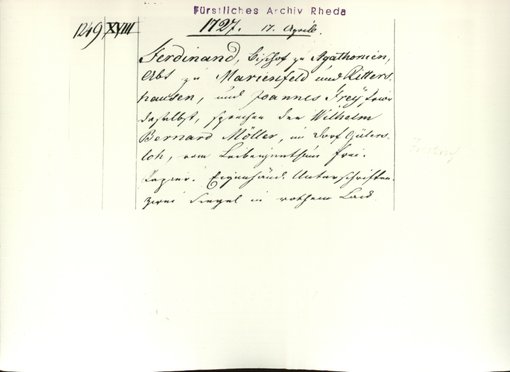 Fürstliches Archiv Rheda
1249 XVIII 1727. 17. Aprill.
Ferdinand, Bischof zu Agathonien,
Abt zu Marienfeld und Ritters-
hausen, und Joannes Frey, Prior
daselbst, sprechen den Wilhelm
Bernard Möller, im Dorf Güters-
loh, vom Leibeigenthum frei.
Papier. Eigenhänd. Unterschriften.
zwei Siegel in rothem Lack